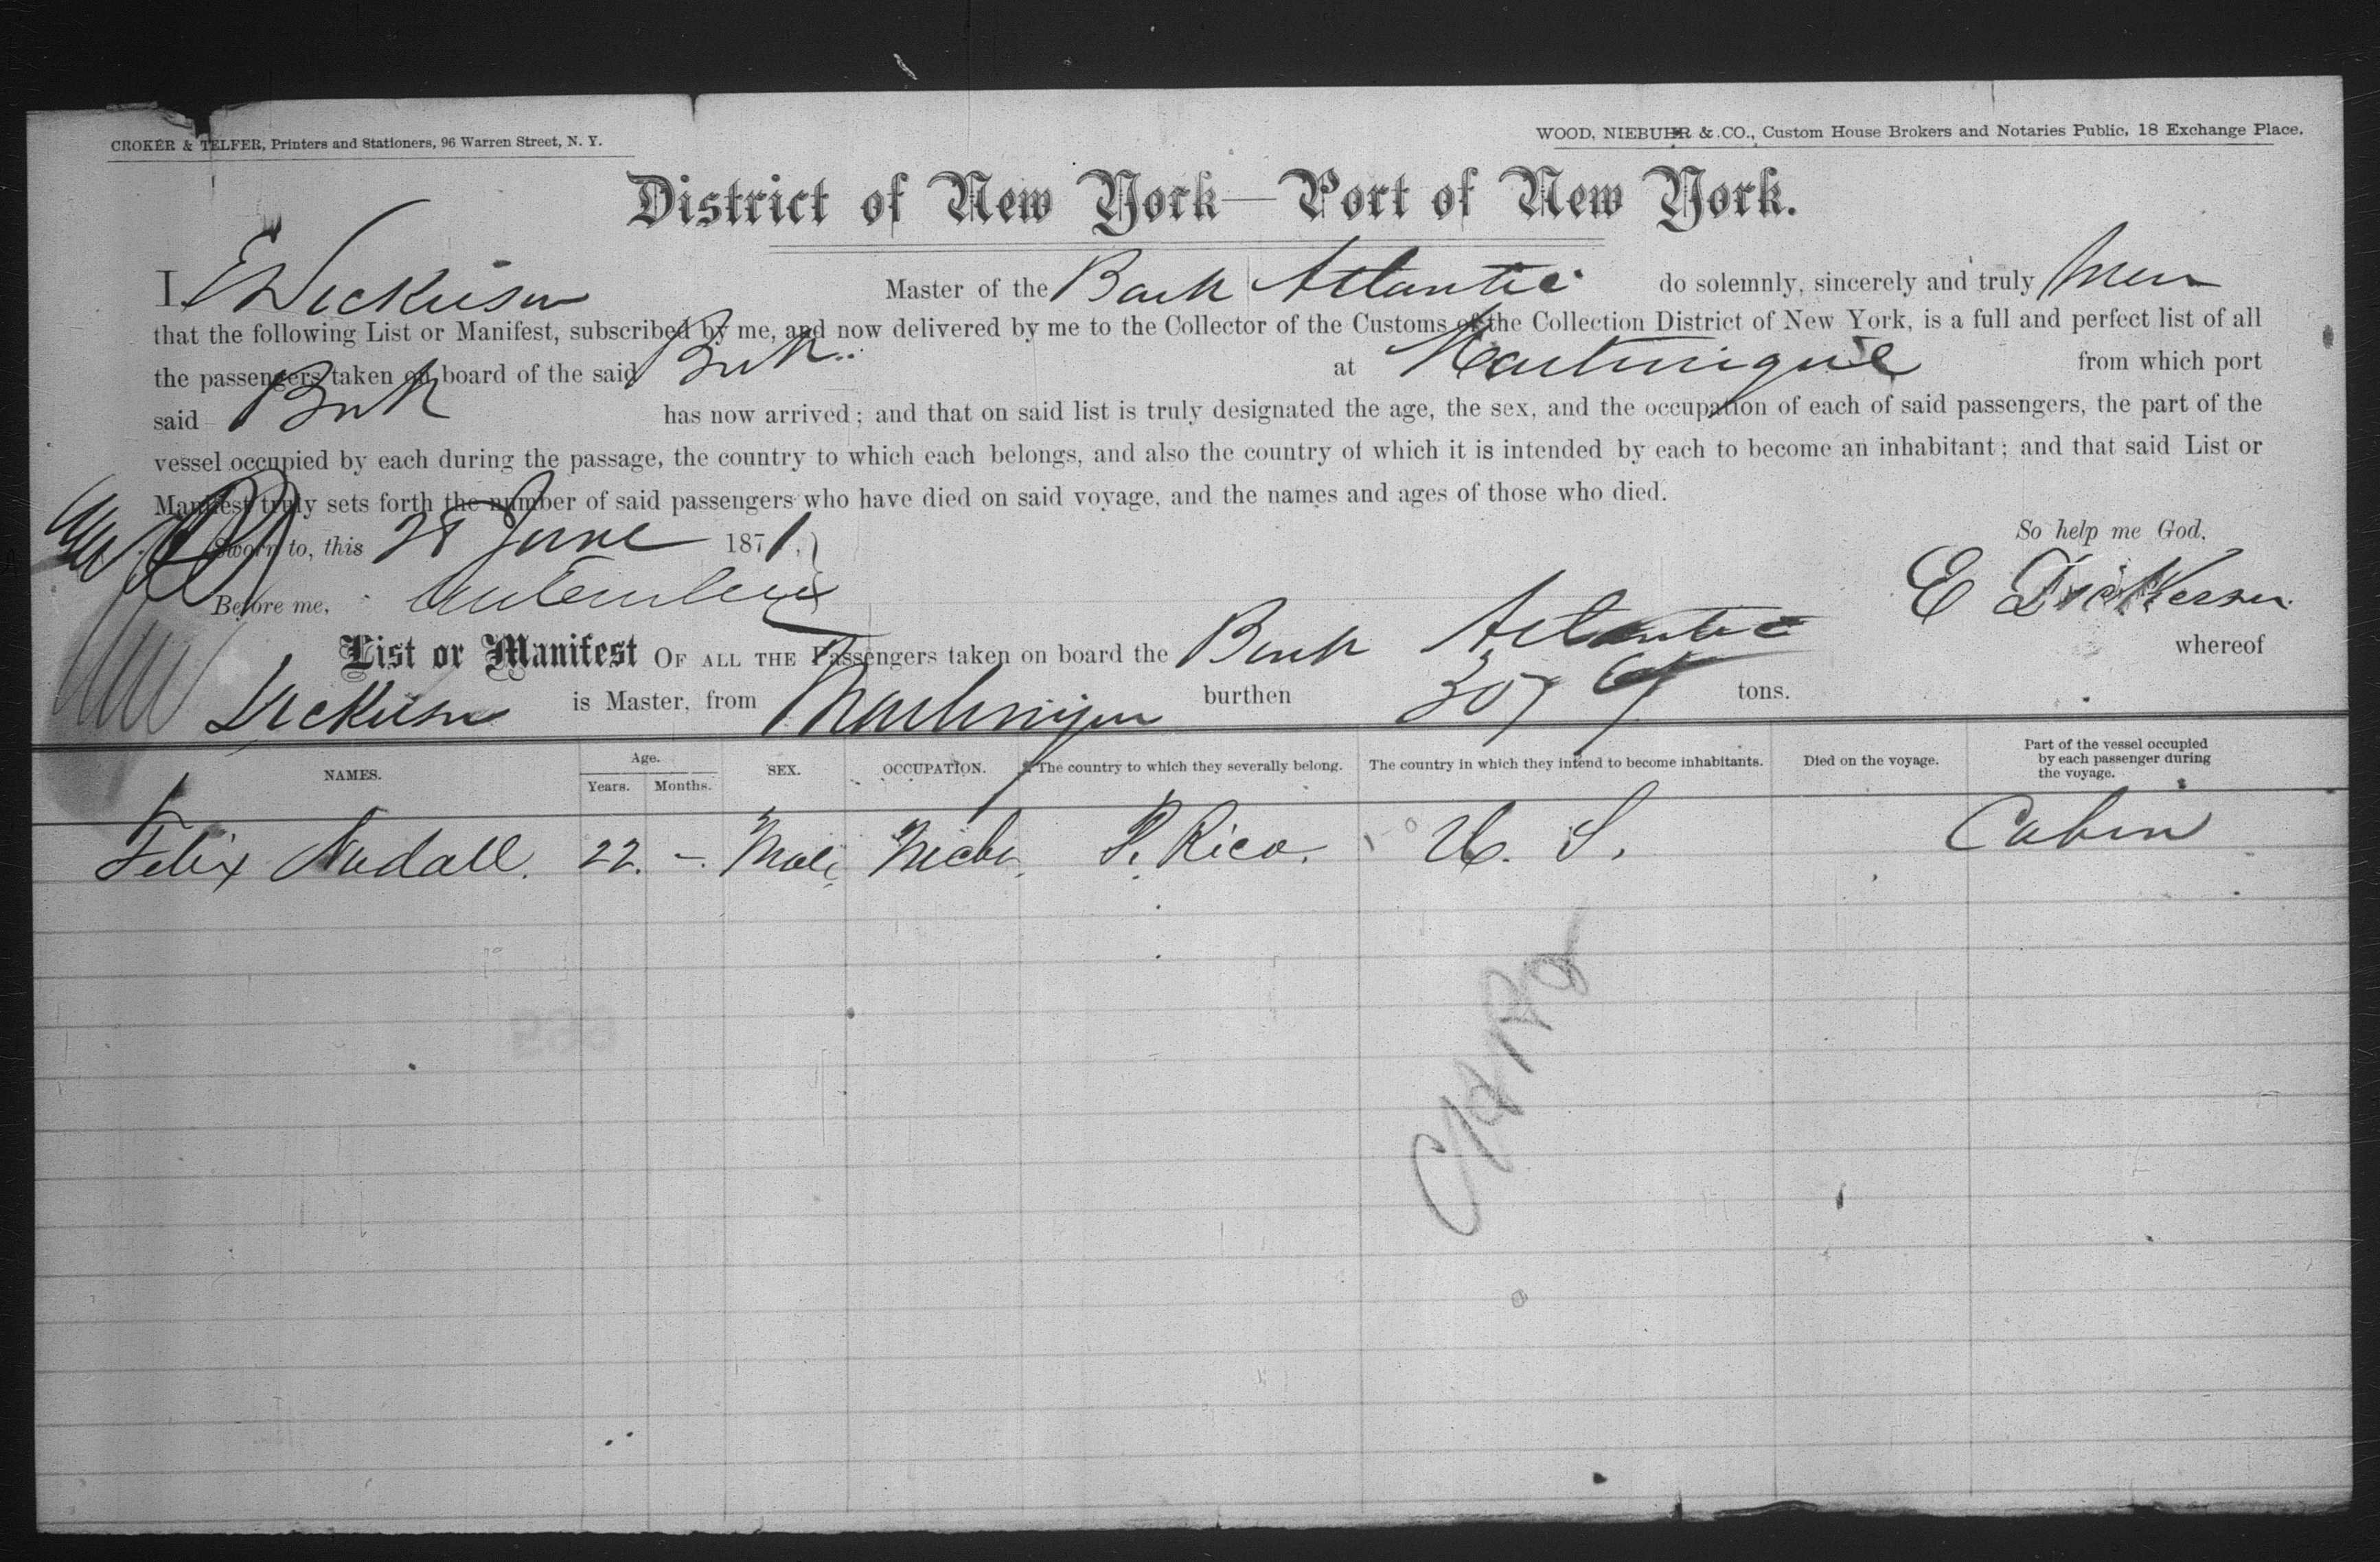 CROKER & TELFER, Printers and Stationers, 96 Warren Street, N. Y.
WOOD, NIEBUHR & CO., Custom House Brokers and Notaries Public, 18 Exchange Place.
District of New York—Port of New York.
I E Dickerson Master of the Bark Atlantic do solemnly, sincerely and truly swear
that the following List or Manifest, subscribed by me, and now delivered by me to the Collector of the Customs of the Collection District of New York, is a full and perfect list of all
the passengers taken on board of the said Bark at Martinique from which port
said Bark has now arrived; and that on said list is truly designated the age, the sex, and the occupation of each of said passengers, the part of the
vessel occupied by each during the passage, the country to which each belongs, and also the country of which it is intended by each to become an inhabitant; and that said List or
Manifest truly sets forth the number of said passengers who have died on said voyage, and the names and ages of those who died.
So help me God,
Sworn to, this 28 June 1871,
E Dickerson
Before me,
List or Manifest OF ALL THE Passengers taken on board the Bark Atlantic whereof
Dickerson is Master, from Martinique burthen tons.
NAMES. Age. Years. Months. SEX. OCCUPATION. The country to which they severally belong. The country in which they intend to become inhabitants. Died on the voyage. Part of the vessel occupied by each passenger during the voyage.
Felix Nadall. 22. -. Male P. Rico. U. S. Cabin